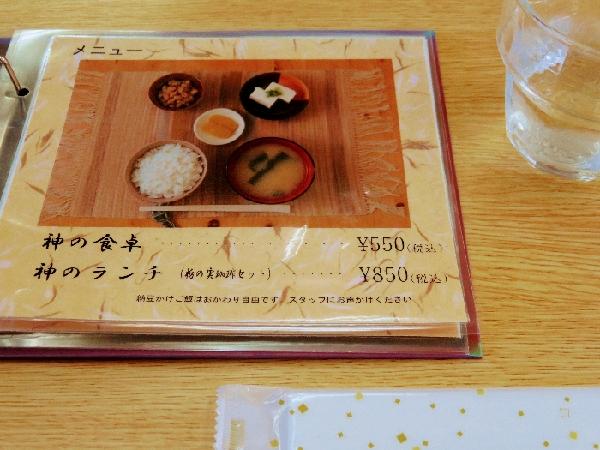 メニュー
神の食卓 ¥550(税込)
神のランチ (栃の実珈琲セット) ¥850(税込)
納豆かけご飯はおかわり自由です スタッフにお声かけください